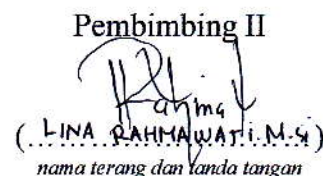 Pembimbing II
Rahma
(LINA RAHMAWATI.M.Si)
nama terang dan tanda tangan